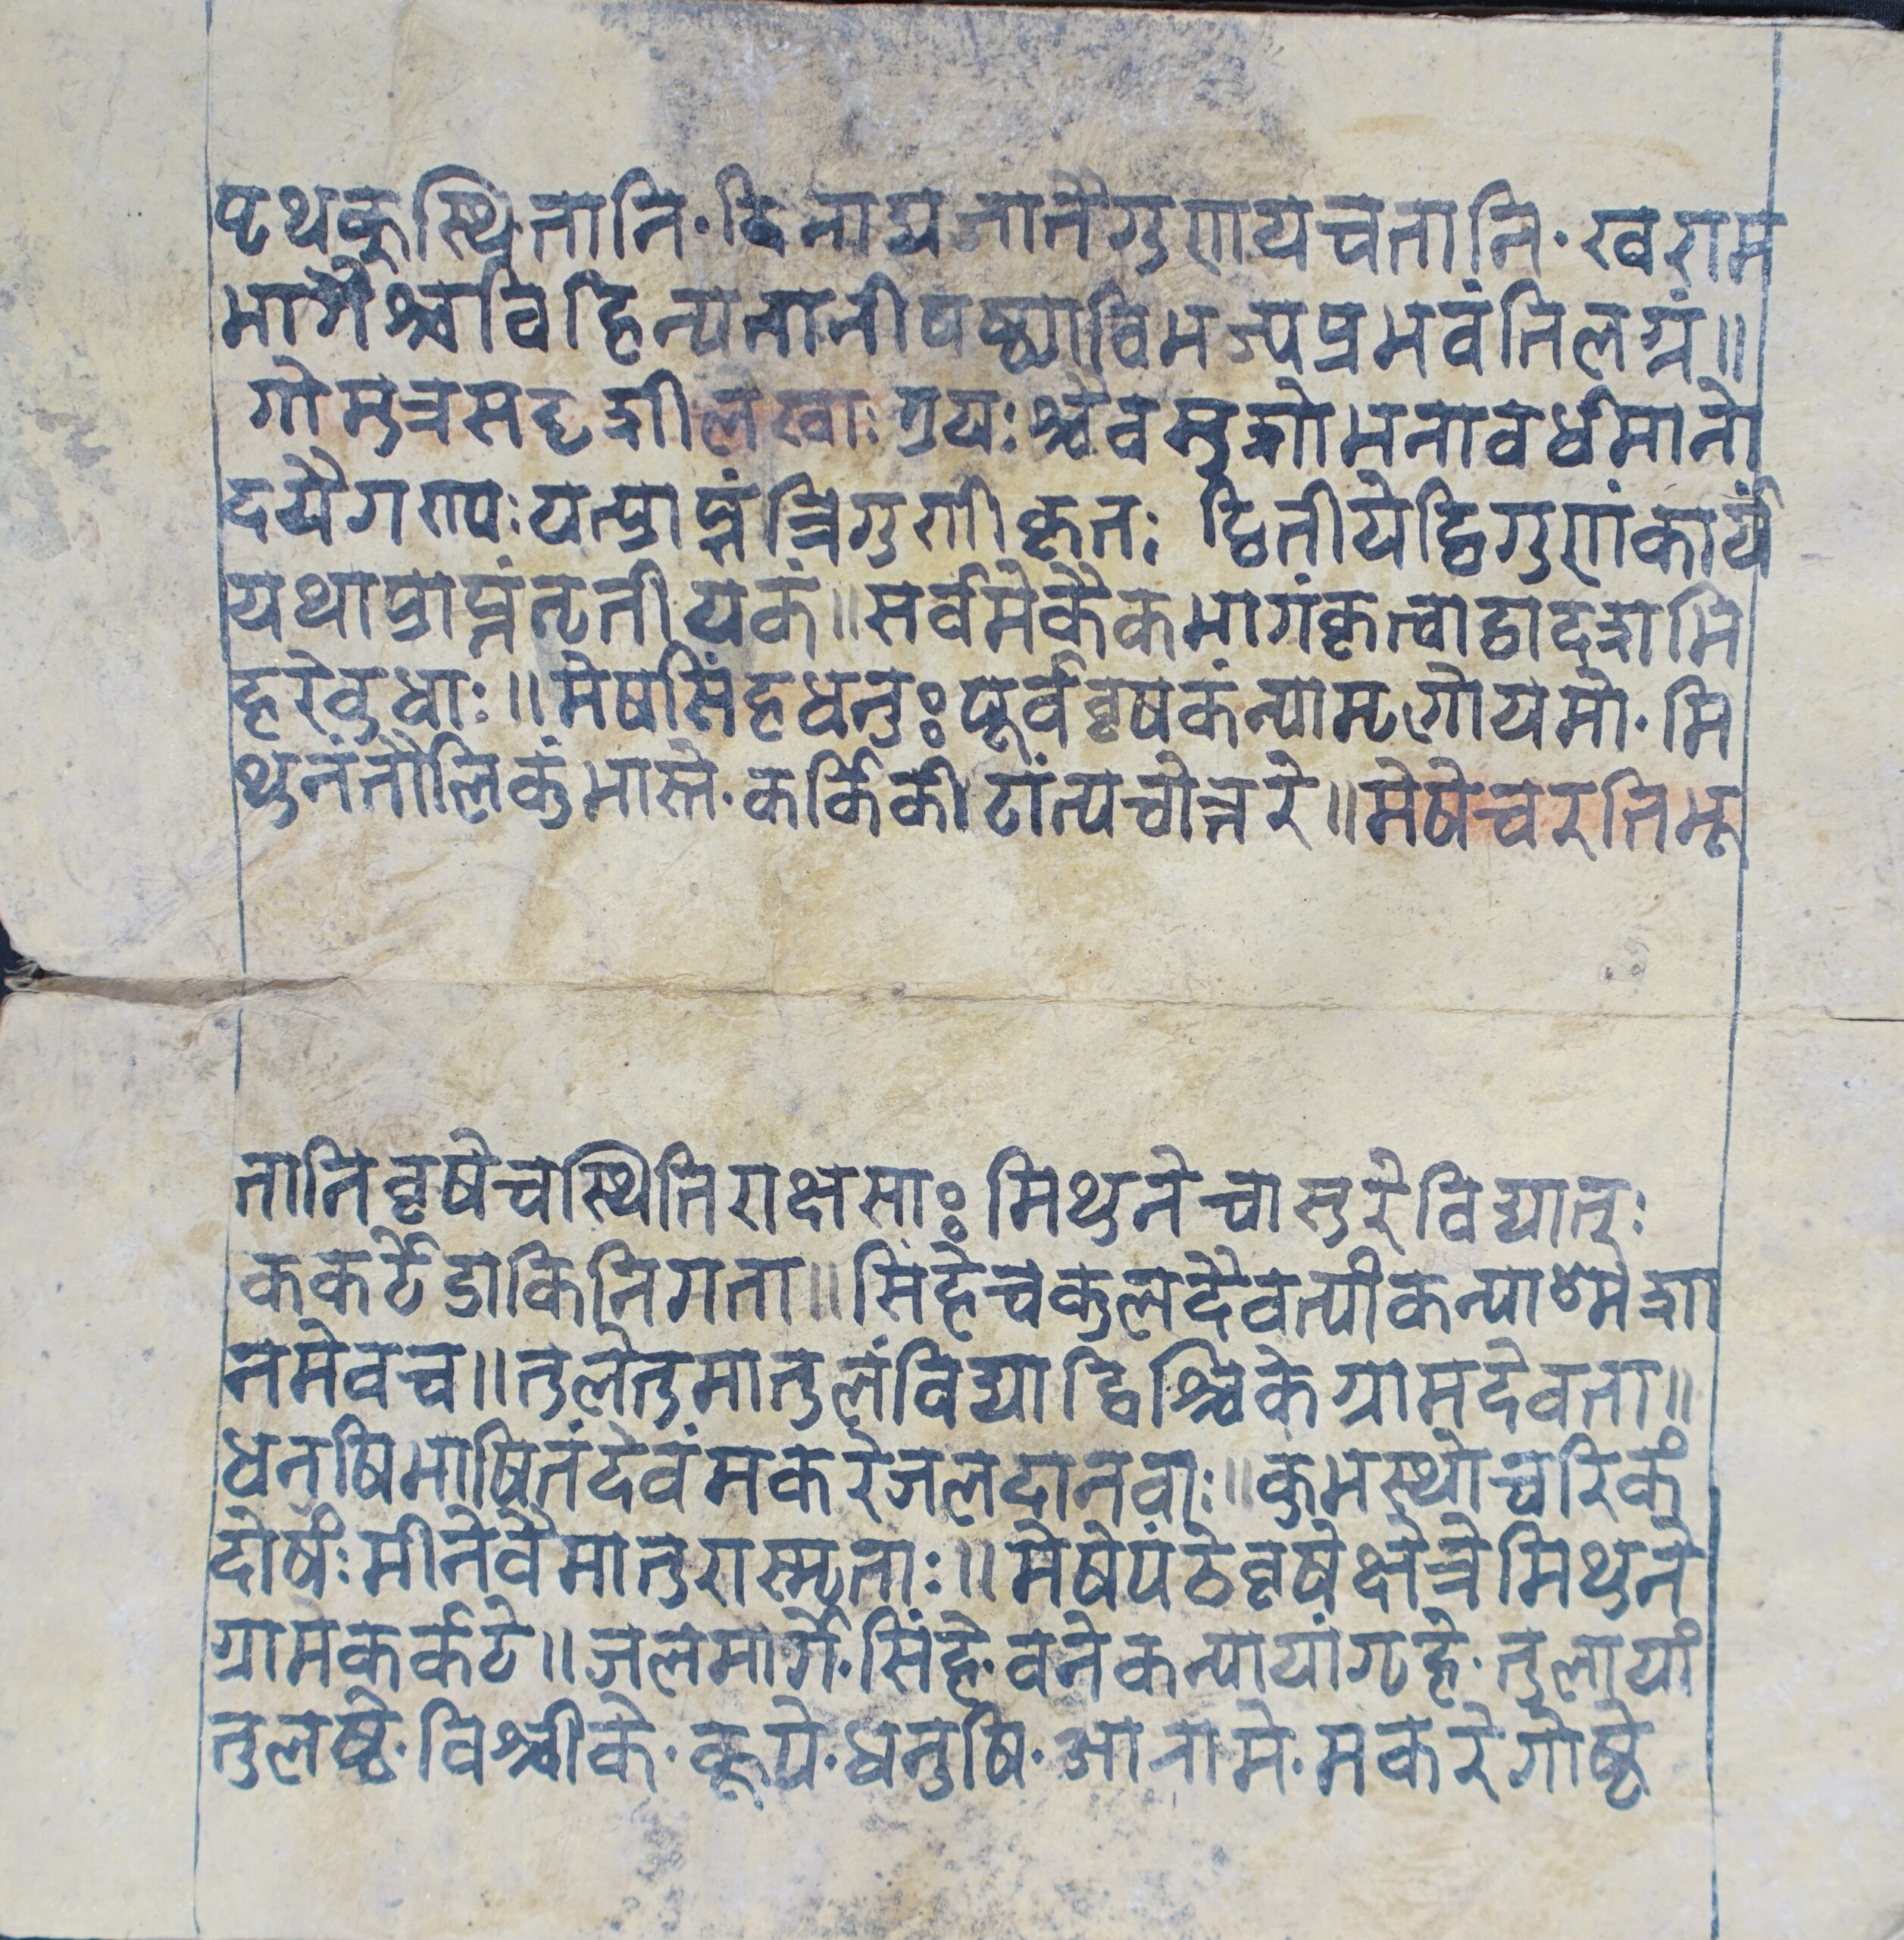 पृथकुस्थितानि·दिनाद्यजातैगुणायचतानि·खराम
भागैश्चविहिन्यतानीषष्ठ्याविभज्यप्रभवंतिलग्नं॥
गोमुत्रसदृशीलेखाःत्रयःश्चैवसुशोभनावर्धमानो
दयैगण्यःयत्प्राप्नंत्रिगुणीकृतः द्वितीयेद्विगुणंकार्यं
यथाप्राप्नंतृतीयकं॥सर्वमेकैकभागंकृत्वाद्वादशभि
हरेवुधाः॥मेषसिंहधनुःपूर्ववृषकंन्यामृगोयमो·मि
थुनंतौलिकुंभास्ते·कर्किकीटांत्यचोत्तरे॥मेषेचरतिभू
तानिवृषेचस्थितिराक्षसाः मिथुनेचासुरेविद्यातः
ककर्टेडाकिनिगता॥सिंहेचकुलदैवत्यीकन्याश्मेशा
नमेवच॥तुलेतुमातुलंविद्याद्विश्चिकेग्रामदेवता॥
धनुषिभाषितंदेवंमकरेजलदानवाः॥कुमस्थोचरिकं
दोर्षंःमीनेवैमातुरास्मृताः॥मेषेपंठेवृषेक्षेत्रेमिथुने
ग्रामकर्कटे॥जलमार्गे·सिंहे·वनेकन्यायांगृहे·तुलायां
तुलष्टे·विश्चीके·कूपे·धनुषि·आरामे·मकरेगोष्ठे